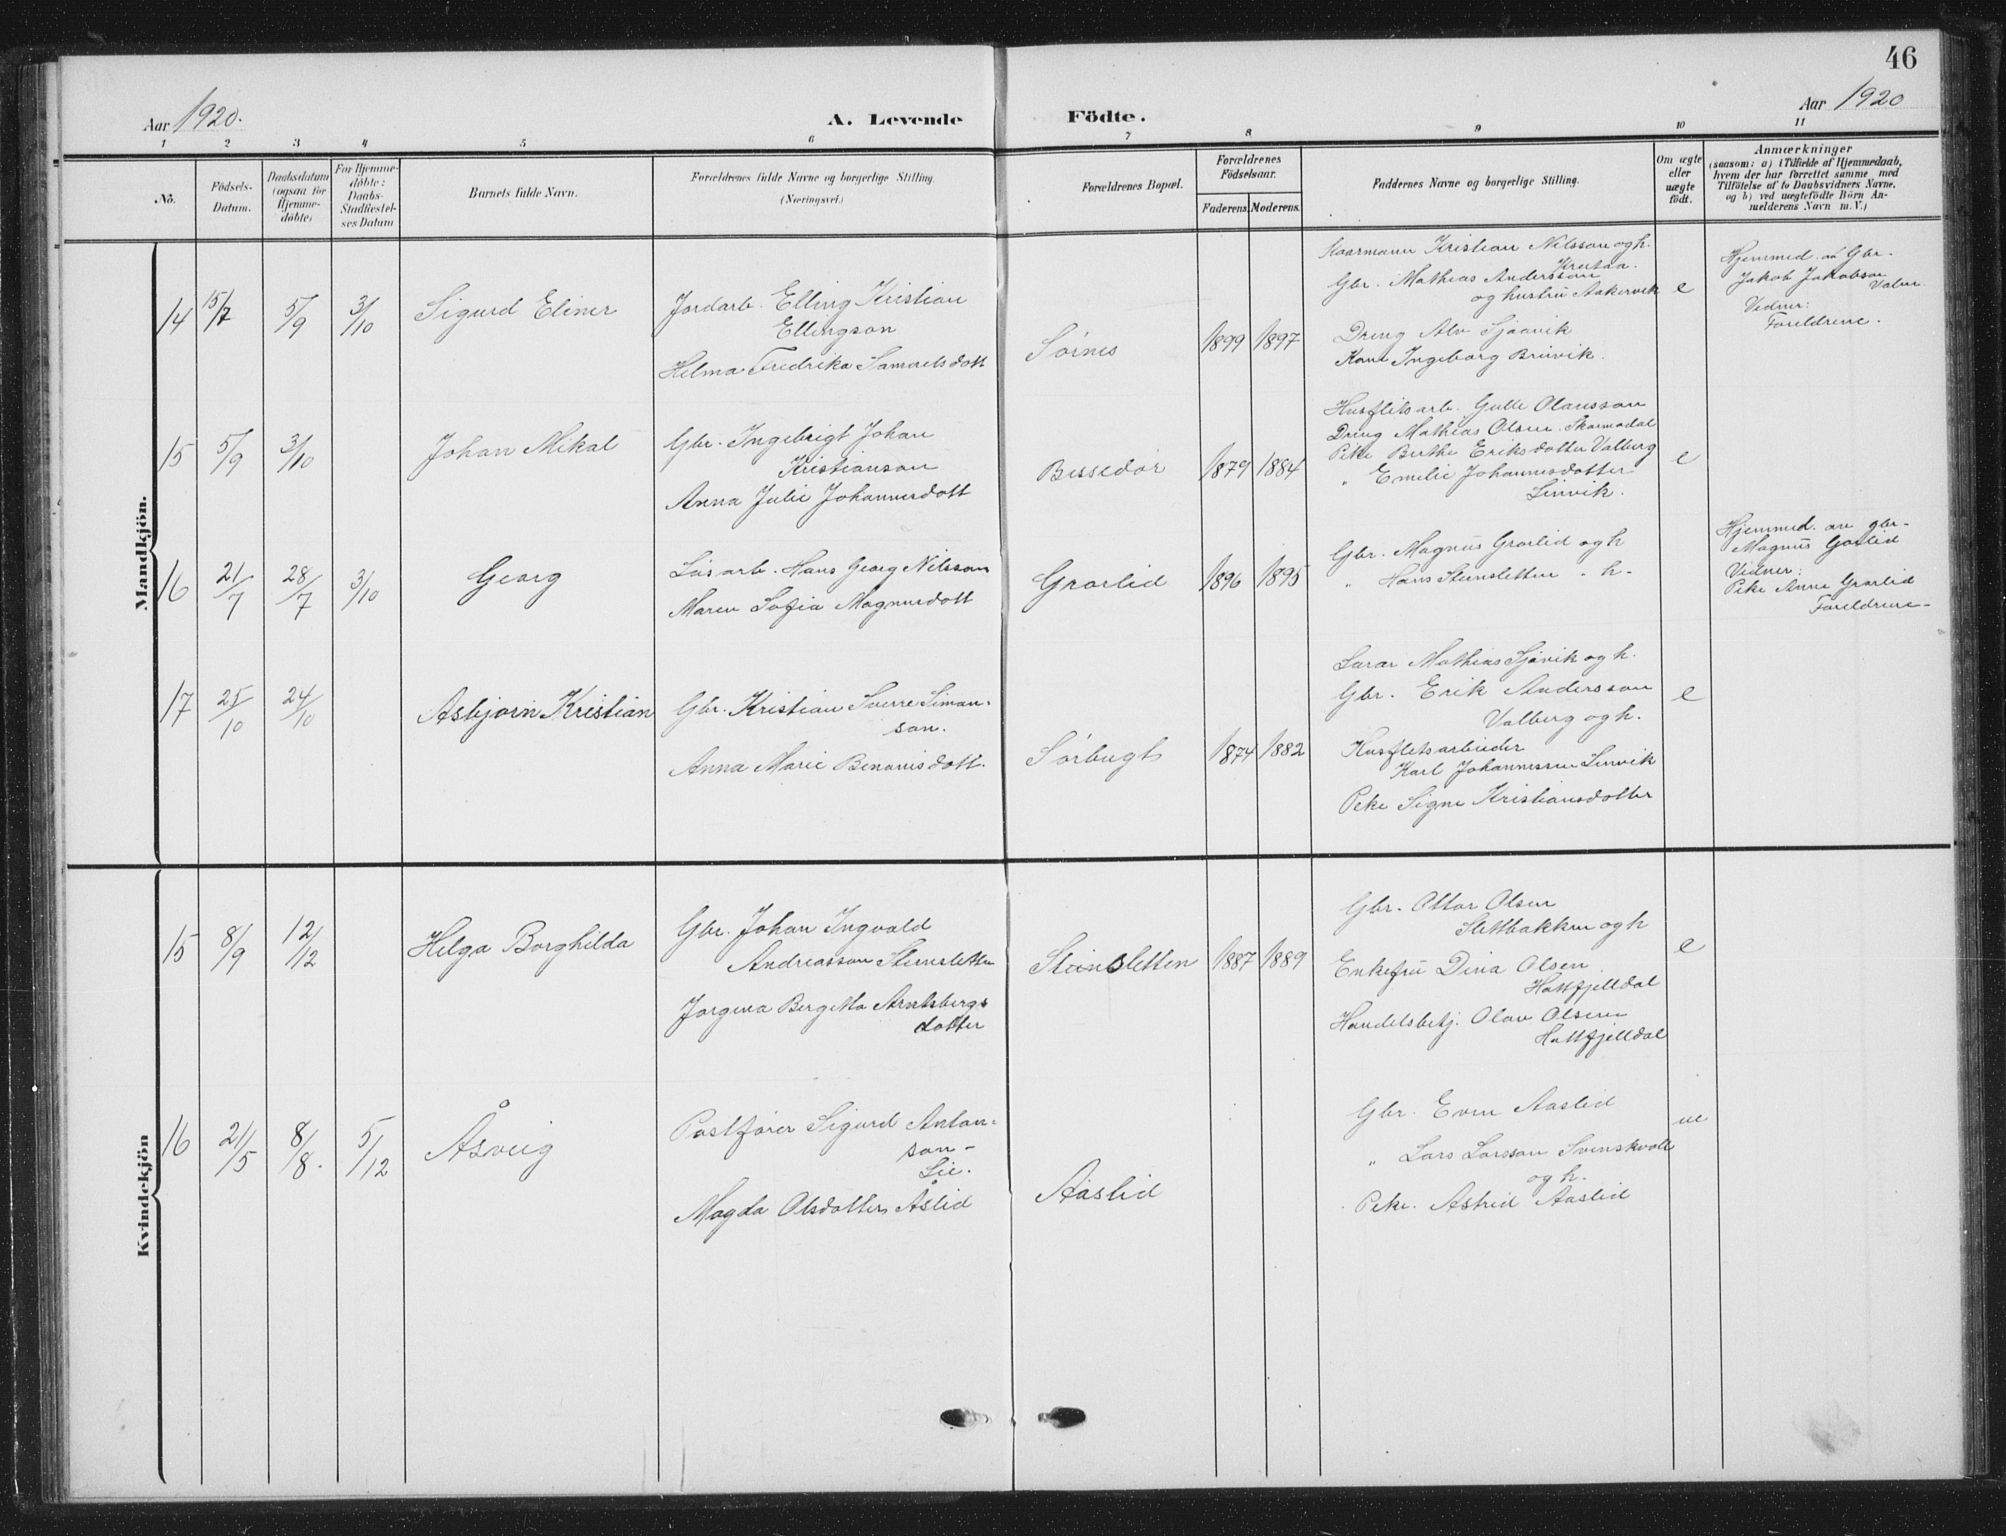 46
Aar 1920. A. Levende Födte. Aar 1920
1 2 3 4 5 6 7 8 9 10 11
No.
Födsels-
Datum.
Daabsdatum
(ogsaa for
Hjemme-
döbte)
For Hjemme-
döbte:
Daabs-
Stadfæstel-
ses Datum
Barnets fulde Navn.
Forældrenes fulde Navne og borgerlige Stilling.
(Næringsvei.)
Forældrenes Bopæl.
Forældrenes
Födselsaar.
Faderens. Moderens.
Faddernes Navne og borgerlige Stilling.
Om ægte
eller
uægte
födt.
Anmærkninger
(saasom: a) i Tilfælde af Hjemmedaab,
hvem der har forrettet samme, med
Tilföielse af to Daabsvidners Navne,
og b) ved uægtefödte Börn An-
melderens Navn m. V.)
Mandkjön.
14 15/7 5/9 3/10 Sigurd Eliner
Jordarb. Elling Kristian
Ellingson
Helma Fredrika Samuelsdott
Sörnes 1899 1897
Kristian Nilsson og h.
Gbr. Mathias Andersson
og hustru Aakervik
Dreng Alv Sjåavik
Kone Ingeborg Bruvik.
e
Hjemmed. av Gbr.
Jakob Jakobson
Vidner:
Foreldrene.
15 5/9 3/10 Johan Mikal
Gbr. Ingebrigt Johan
Kristianson
Anna Julie Johannesdott
Bessedör 1879 1884
Husflitsarb. Gulle Olausson
Dreng Mathias Olsen Skarmodal
Pike Berthe Eriksdotter Valberg
" Emelie Johannesdotter
Linvik.
e
16 21/7 28/7 3/10 Georg
Lösarb. Hans Georg Nilsson
Maren Sofia Magnusdott
Grorlid 1896 1895
Gbr. Magnus Grorlid og h
" Hans Steinsletten " h.
Hjemmed. av gbr.
Magnus Gorlid
Vidner:
Pike Anne Grorlid
Foreldrene.
17 25/10 24/10 Asbjørn Kristian
Gbr. Kristian Sverre Simon-
son.
Anna Marie Benonisdott.
Sørbugt 1874 1882
Lærar Mathias Sjåvik og h.
Gbr. Erik Andersson
Valberg og h.
Husflitsarbeider
Karl Johannessen Linvik
Pike Signe Kristiansdotter
e
Kvindekjön
15 8/9 12/12 Helga Borghilda
Gbr. Johan Ingvald
Andreasson Steinsletten
Jorgina Bergitta Arntsbergs
dotter
Steinsletten 1887 1889
Gbr. Ottar Olsen
Slettbakken og h
Enkefru Dina Olsen
Hattfjelldal
Handelsbetj. Olav Olsen
Hattfjelldal
e
16 21/5 8/8. 5/12 Åsveig
Postfører Sigurd Anton-
son-
Lie.
Magda Olsdotter Åslid
Aaslid
Gbr. Even Aaslid
" Lars Larsson Svenskvoll
og h.
Pike. Astrid Aaslid
ue